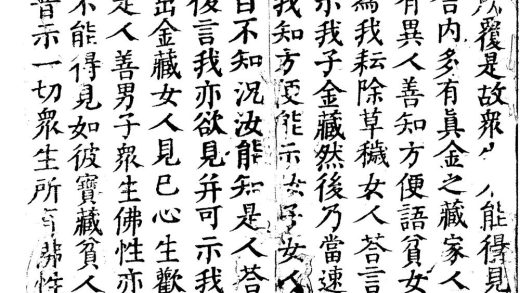 所覆是故衆能得見
舍內多有眞金之藏家人
有異人善知方便語貧女
爲我耘除草穢女人荅言
示我子金藏然後乃當速
我知方便能示汝子女人
自不知況汝能知是人荅
復言我亦欲見并可示我
出金藏女人見已心生歡
是人善男子衆生佛性亦
不能得見如彼寶藏貧人
普示一切衆生所有佛性